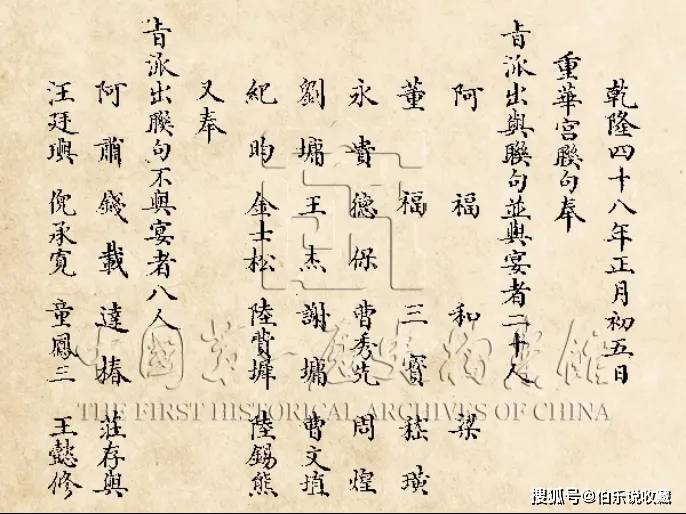 乾隆四十八年正月初五日
重華宮聯句奉
旨派出與聯句並與宴者二十人
阿 福 和 梁
董 福 三寳 嵇璜
永貴 德保 曹秀先 周煌
劉墉 王杰 謝墉 曹文埴
紀昀 金士松 陸費墀 陸錫熊
又奉
旨派出聯句不與宴者八人
阿肅 錢載 達椿 莊存與
汪廷璵 倪承寬 童鳳三 王懿修
中國第一歷史檔案館
THE FIRST HISTORICAL ARCHIVES OF CHINA
搜狐号@伯乐说收藏